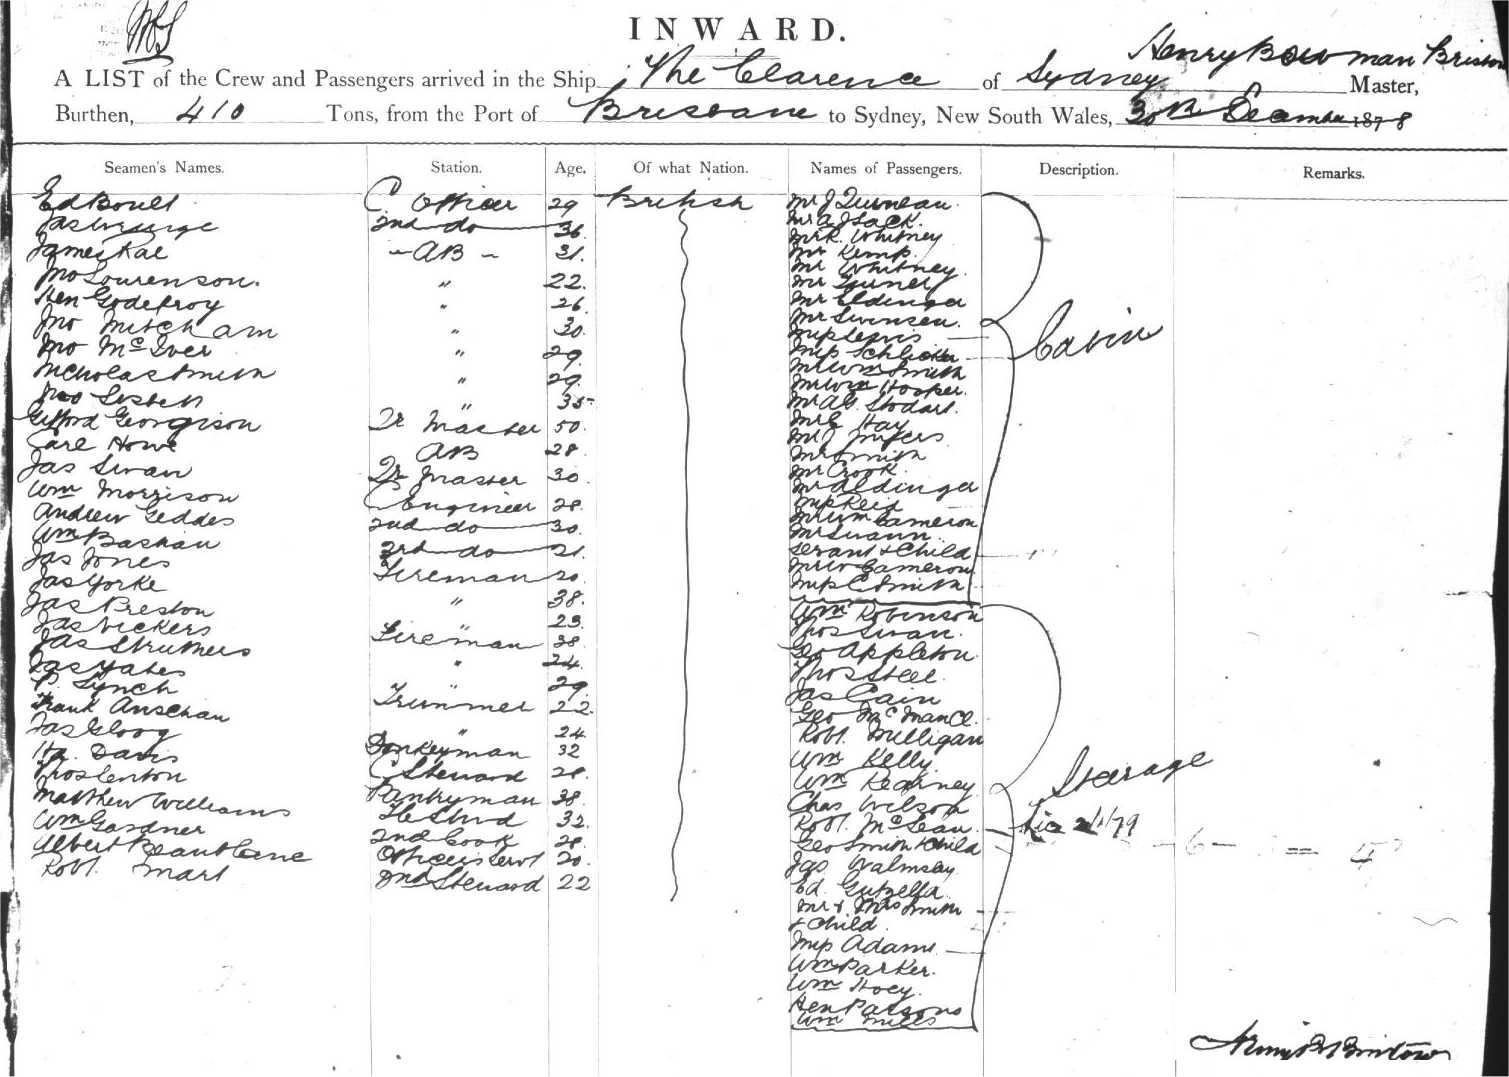 INWARD.
Henry Bowman Bristow
A LIST of the Crew and Passengers arrived in the Ship The Clarence of Sydney Master,
Burthen, 410 Tons, from the Port of Brisbane to Sydney, New South Wales, 30th December 1878
Seamen's Names. Station. Age. Of what Nation. Names of Passengers. Description. Remarks.
Ed Boult C Officer 29 British
2nd do 36
James Rae AB 31
Jno Lourenson 22
Hen Godefroy " 26
Jno Mitcham " 30
Jno McIver " 29
Nicholas Smith " 29
" 35
Gifford Georgison Lr Master 50
Carl Howe AB 28
Jas Swan Lr Master 30
Wm Morrison C Engineer 28
Andrew Geddes 2nd do 30
Wm 3rd do 21
Jas Jones Fireman 20
Jas Yorke " 38
Jas Preston " 23
Jas Vickers Fireman 38
Jas Struthers " 24
Jas Yates " 29
P. Lynch Trimmer 22
Frank " 24
Donkeyman 32
Davis C Steward 28
Thos Lenton Pantryman 38
Matthew Williams 32
Wm Gardner 2nd Cook 28
Albert Officers Servt 20
Robt. Mart 2nd Steward 22
Mr J
Mr A J Sack
Mr R. Whitney
Mr Kemp
Mr Whitney
Mr
Mr Eldinger
Mr Swinsen
Miss Lewis
Miss
Mr Wm Smith
Mr Wm Hooper
Mr Ab Stodart
Mr E Hay
Mr J Myers
Mr Smith
Mr Crook
Mr Aldinger
Miss Reid
Mr Wm Cameron
Mr Swann
Servant & Child
Mr W Cameron
Miss C Smith
Cabin
Wm Robinson
Thos Swan
Geo Appleton
Thos Steel
Jas Cain
Geo
Robt. Milligan
Wm Kelly
Wm Kearney
Chas Wilson
Robt. McLean
Geo Smith & Child
Jas Walmsey
Ed.
Mr & Mrs Smith
& Child
Miss Adams
Wm Parker
Wm Hoey
Hen Parsons
Wm Mills
Stearage